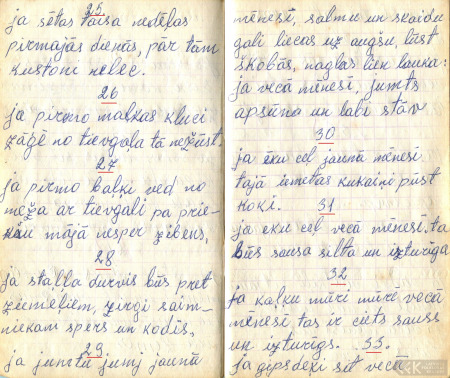 25
ja sētas taisa nedēļas
pirmajās dienās, pār tām
kustoņi nelec.
26
ja pirmo malkas kluci
zāģē no tievgaļa tā nežūst.
27
ja pirmo baļķi ved no
meža ar tievgali pa prie-
kšu mājā nesper zibens,
28
ja staļļa durvis būs pret
ziemeļiem, zirgi saim-
niekam spers un kodīs,
29
ja jumtā jumj jaunā
mēnesī, salmu un skaidu
gali liecas uz augšu, lūst
skobās, naglas lien laukā:
ja vecā mēnesī, jumts
apsūno un labi stāv
30
ja ēku ceļ jaunā mēnesī
tajā iemetas kukaiņi pūst
koki.
31
ja ēku ceļ vecā mēnesī, tā
būs sausa silta un izturīga
32
Ja kaļķu mūri mūrē vecā
mēnesī tas ir ciets sauss
un izturīgs. 33.
ja ģipsdēķi sit vecā